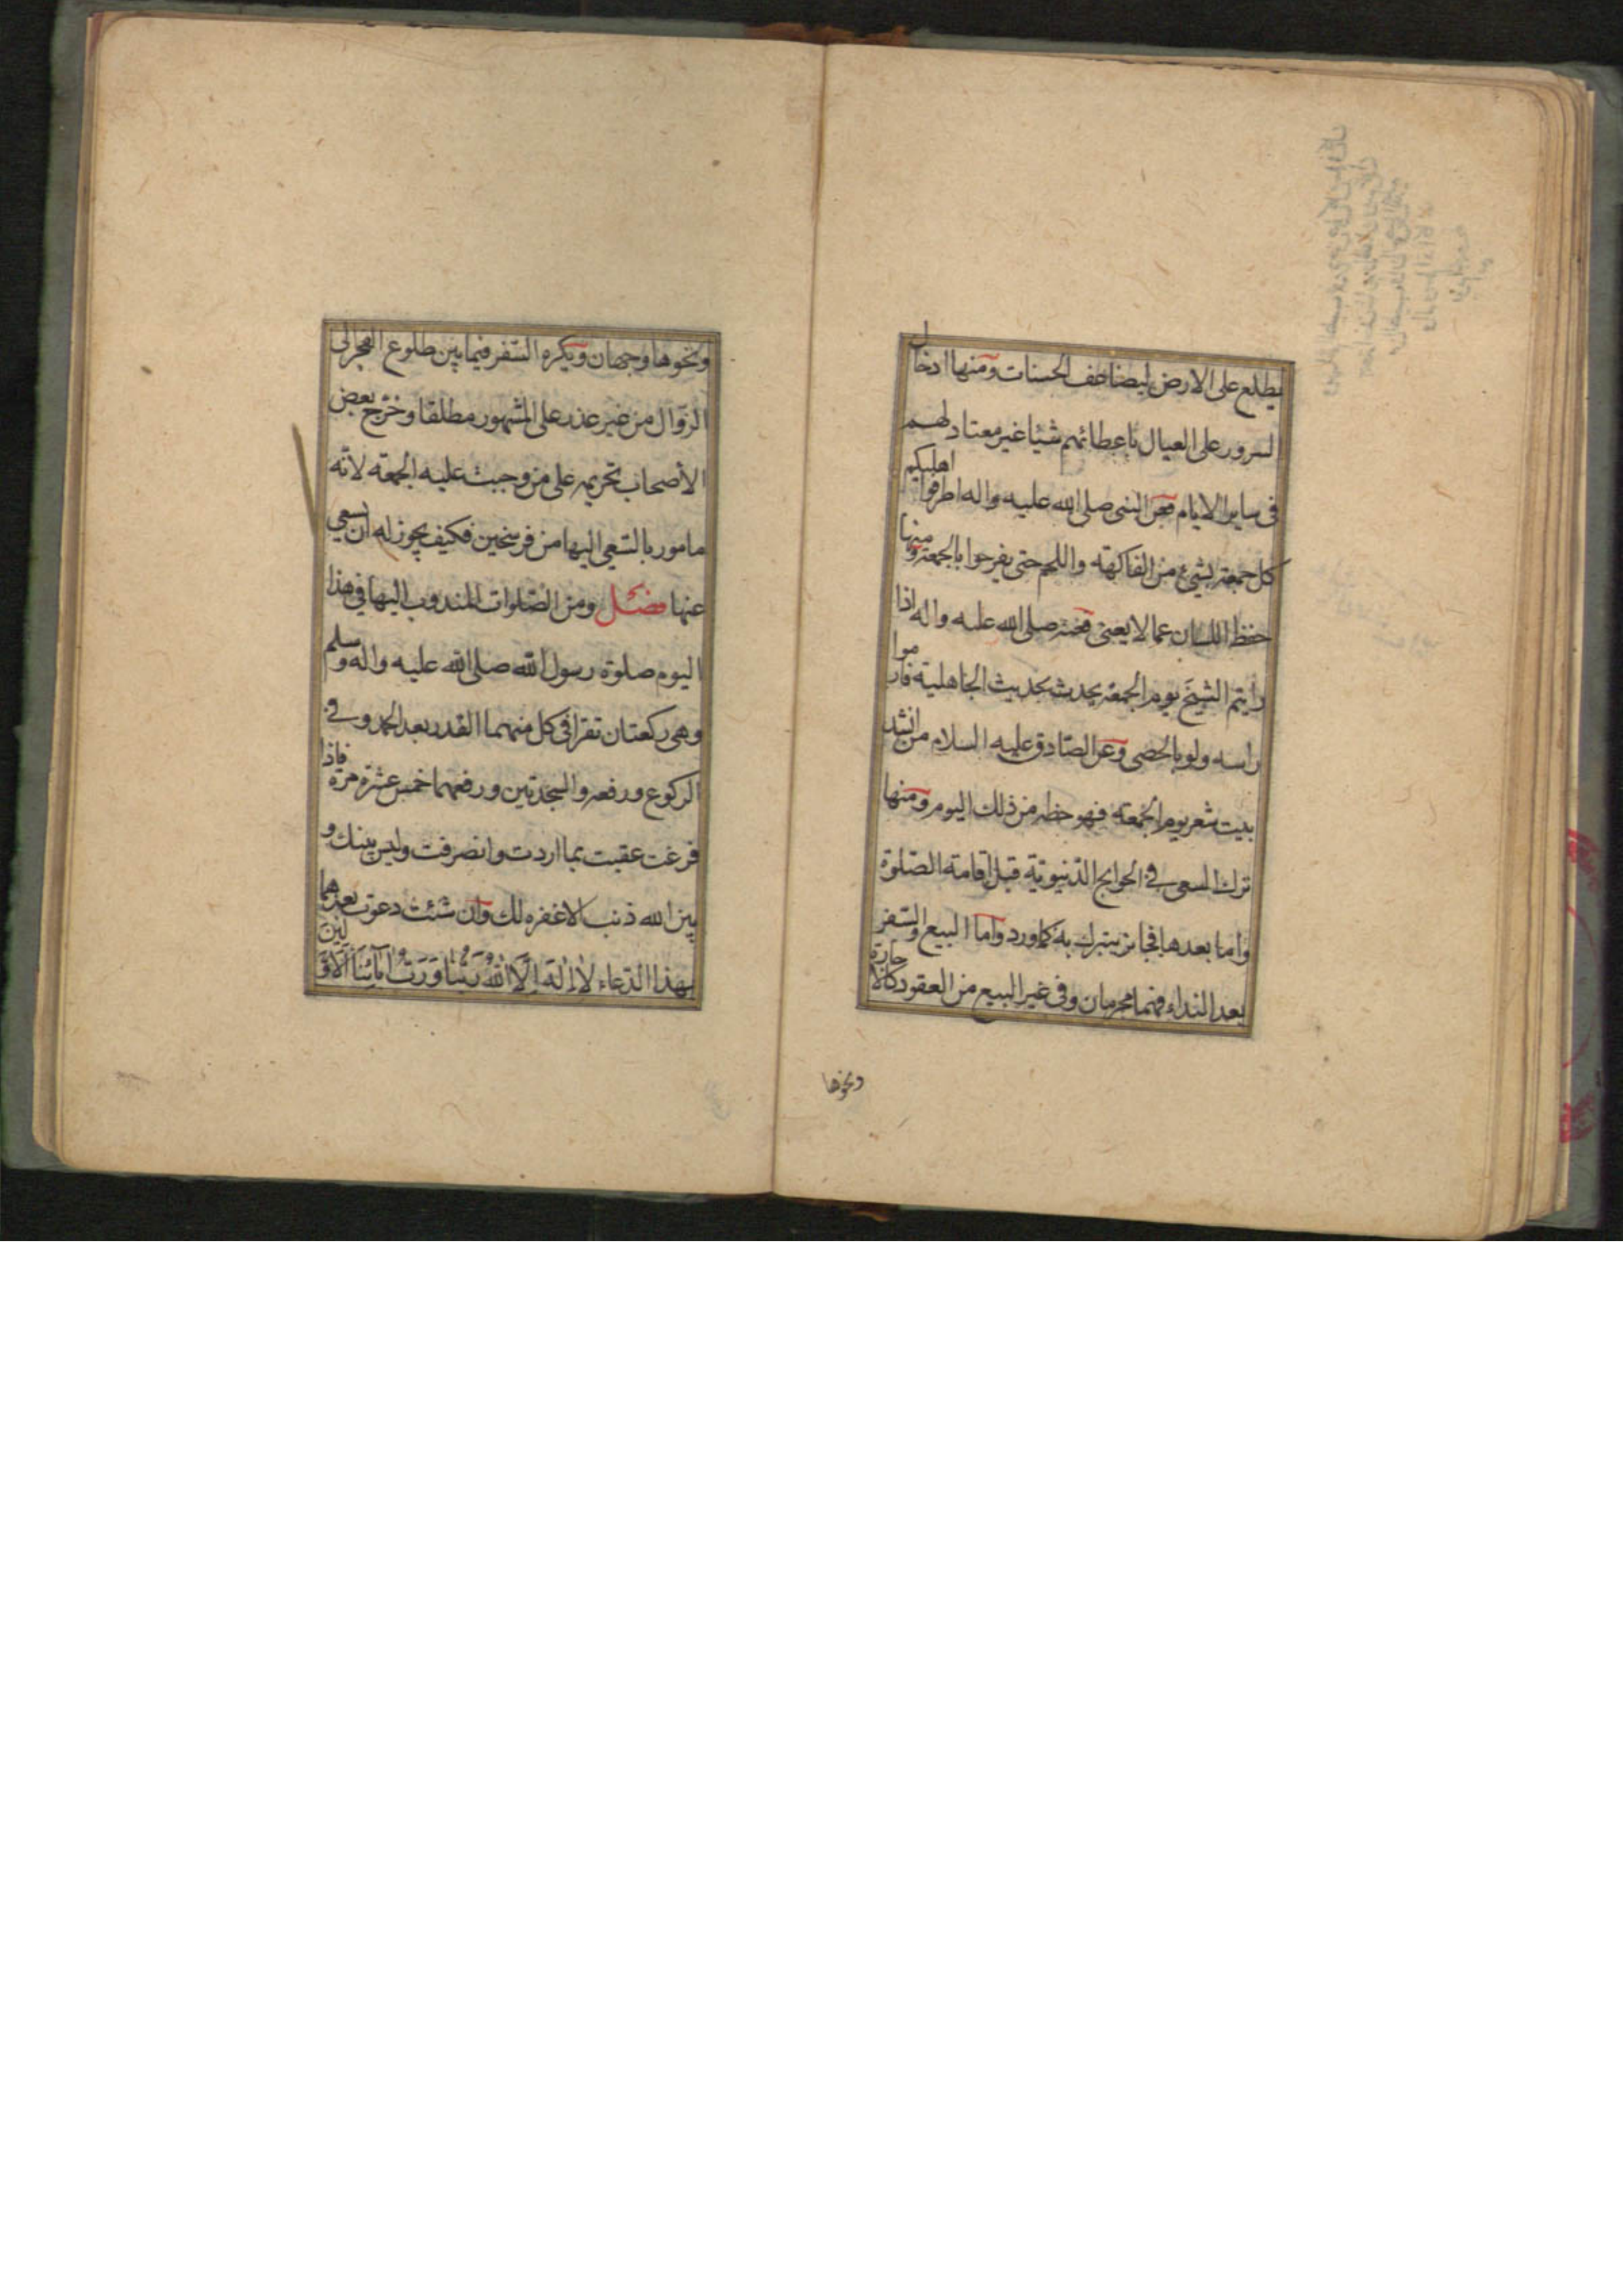 يطلع على الارض ليضاعف الحسنات ومنها ادخال
السرور على العيال باعطائهم شيئا غير معتاد لهم
فى ساير الايام فعن النبى صلى الله عليه واله اطرفوا اهليكم
كل جمعة بشيئ من الفاكهة واللحم حتى يفرحوا بالجمعة ومنها
حفظ اللسان عما لا يعنى فعنه صلى الله عليه واله اذا
رايتم الشيخ يوم الجمعة يحدث بحديث الجاهلية فارموا
راسه ولو بالحصى وعن الصادق عليه السلام من انشد
بيت شعر يوم الجمعة فهو حظه من ذلك اليوم ومنها
ترك السعى فى الحوايج الدنيوية قبل اقامة الصلوة
واما بعدها فجايز يتبرك به كما ورد واما البيع والسفر
بعد النداء فهما محرمان وفى غير البيع من العقود كالاجارة
ونحوها
ونحوها وجهان ويكره السفر فيما بين طلوع الفجر الى
الزوال من غير عذر على المشهور مطلقا وخرج بعض
الأصحاب تحريمه على من وجبت عليه الجمعة لانه
مامور بالسعى اليها من فرسخين فكيف يجوز له ان يسعى
عنها فصل ومن الصلوات المندوب اليها في هذا
اليوم صلوة رسول الله صلى الله عليه واله وسلم
وهى ركعتان تقرا فى كل منهما القدر بعد الحمد وفى
الركوع ورفعه والسجدتين ورفعهما خمس عشرة مرة فاذا
فرغت عقبت بما اردت وانصرفت وليس بينك و
بين الله ذنب الا غفره لك وان شئت دعوت بعدهما
بهذا الدعاء لا اله الا الله ربنا ورب ابائنا الاولين